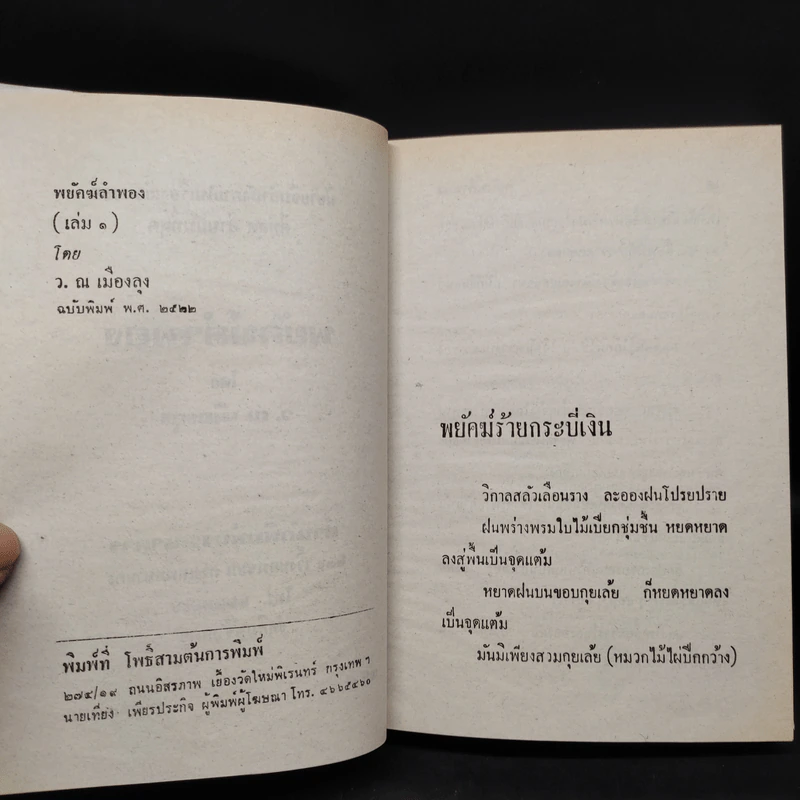 พยัคฆ์ลำพอง
(เล่ม ๑)
โดย
ว. ณ เมืองลุง
ฉบับพิมพ์ พ.ศ. ๒๕๒๒
พิมพ์ที่ โพธิ์สามต้นการพิมพ์
๒๗๔/๑๙ ถนนอิสรภาพ เยื้องวัดใหม่พิเรนทร์ กรุงเทพ ฯ
นายเที่ยง เพียรประกิจ ผู้พิมพ์ผู้โฆษณา โทร. ๔๖๖๕๔๖๐
พยัคฆ์ร้ายกระบี่เงิน
วิกาลสลัวเลือนราง ละอองฝนโปรยปราย
ฝนพร่างพรมใบไม้เปียกชุ่มชื้น หยดหยาด
ลงสู่พื้นเป็นจุดแต้ม
หยาดฝนบนขอบกุยเล้ย ก็หยดหยาดลง
เป็นจุดแต้ม
มันมิเพียงสวมกุยเล้ย (หมวกไม้ไผ่ปีกกว้าง)